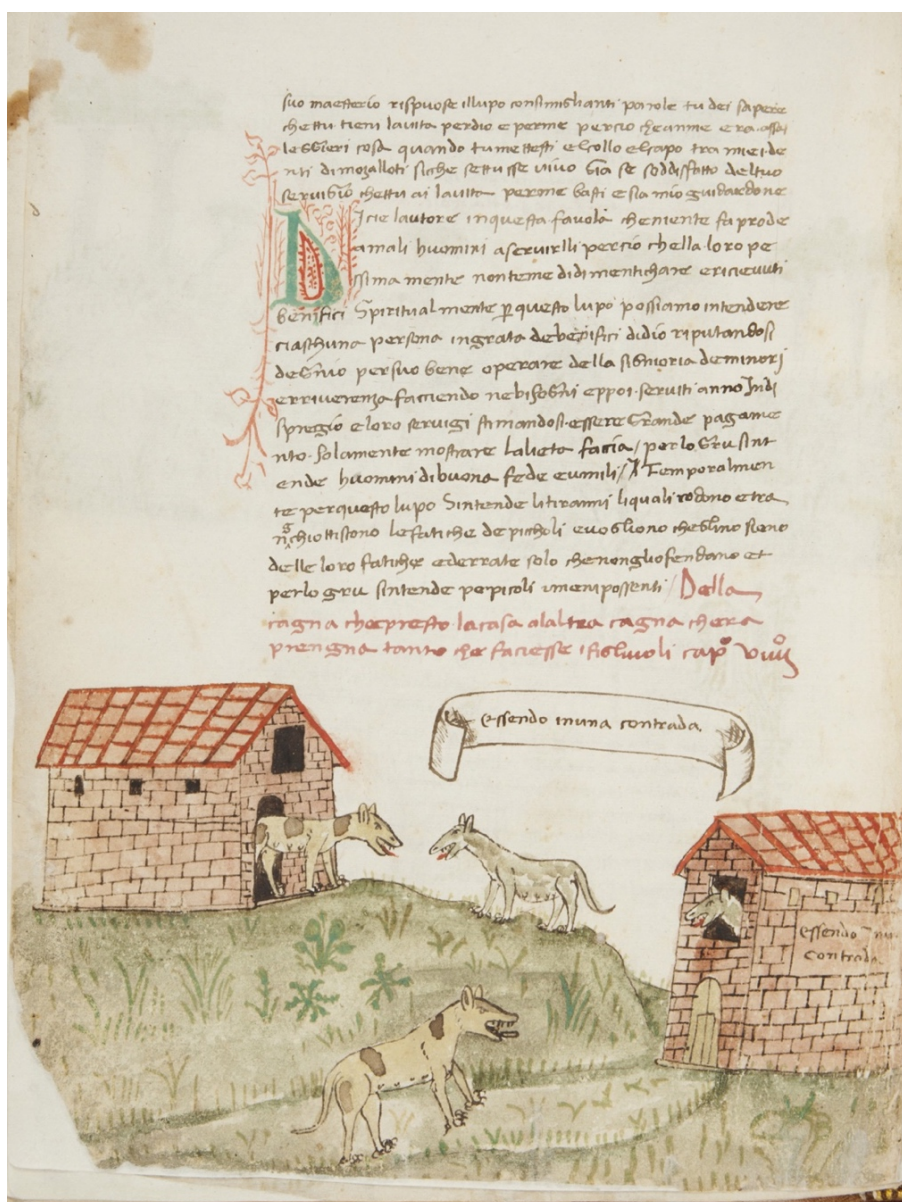 suo maesterio rispuose illupo consimiglianti parole tu dei sapere
chettu tieni lauita perdio e perme percio cheamme era assai
leggieri cosa quando tumettesti elcollo elcapo tra miei de
nti dimozalloti siche settusse uiuo sia se soddisfatto deltuo
seruigio chettu ai lauita perme basti e sia mio guidardone
Dicie lautore inquesta fauola cheniente fa prode
amali huomini aseruirlli percio chella loro pe
ssima mente nonteme didimentichare ericieuuti
benifici Spiritualmente p questo lupo possiamo intendere
ciaschuna persona ingrata debenifici didio riputandosi
degnio persuo bene operare della signioria deminori
erriuerenza facciendo nebisogni eppoi seruiti anno Indi
spregio eloro seruigi stimandosi essere Grande pagame
nto solamente mostrare lalieta faccia / perlo Gru sint
ende huomini dibuona fede eumili / Temporalmen
te perquesto lupo Sintende litiranni liquali rodono etra
nchiottiscono lefatiche depicholi euogliono cheglino sieno
delle loro fatiche ederrate solo chenongliofendano et
perlo gru sintende popicoli impossenti / Della
cagna chepresto lacasa alaltra cagna chera
prengna tanto che faciesse ifigliuoli capº viiijº
essendo inuna contrada
essendo inu
contrada